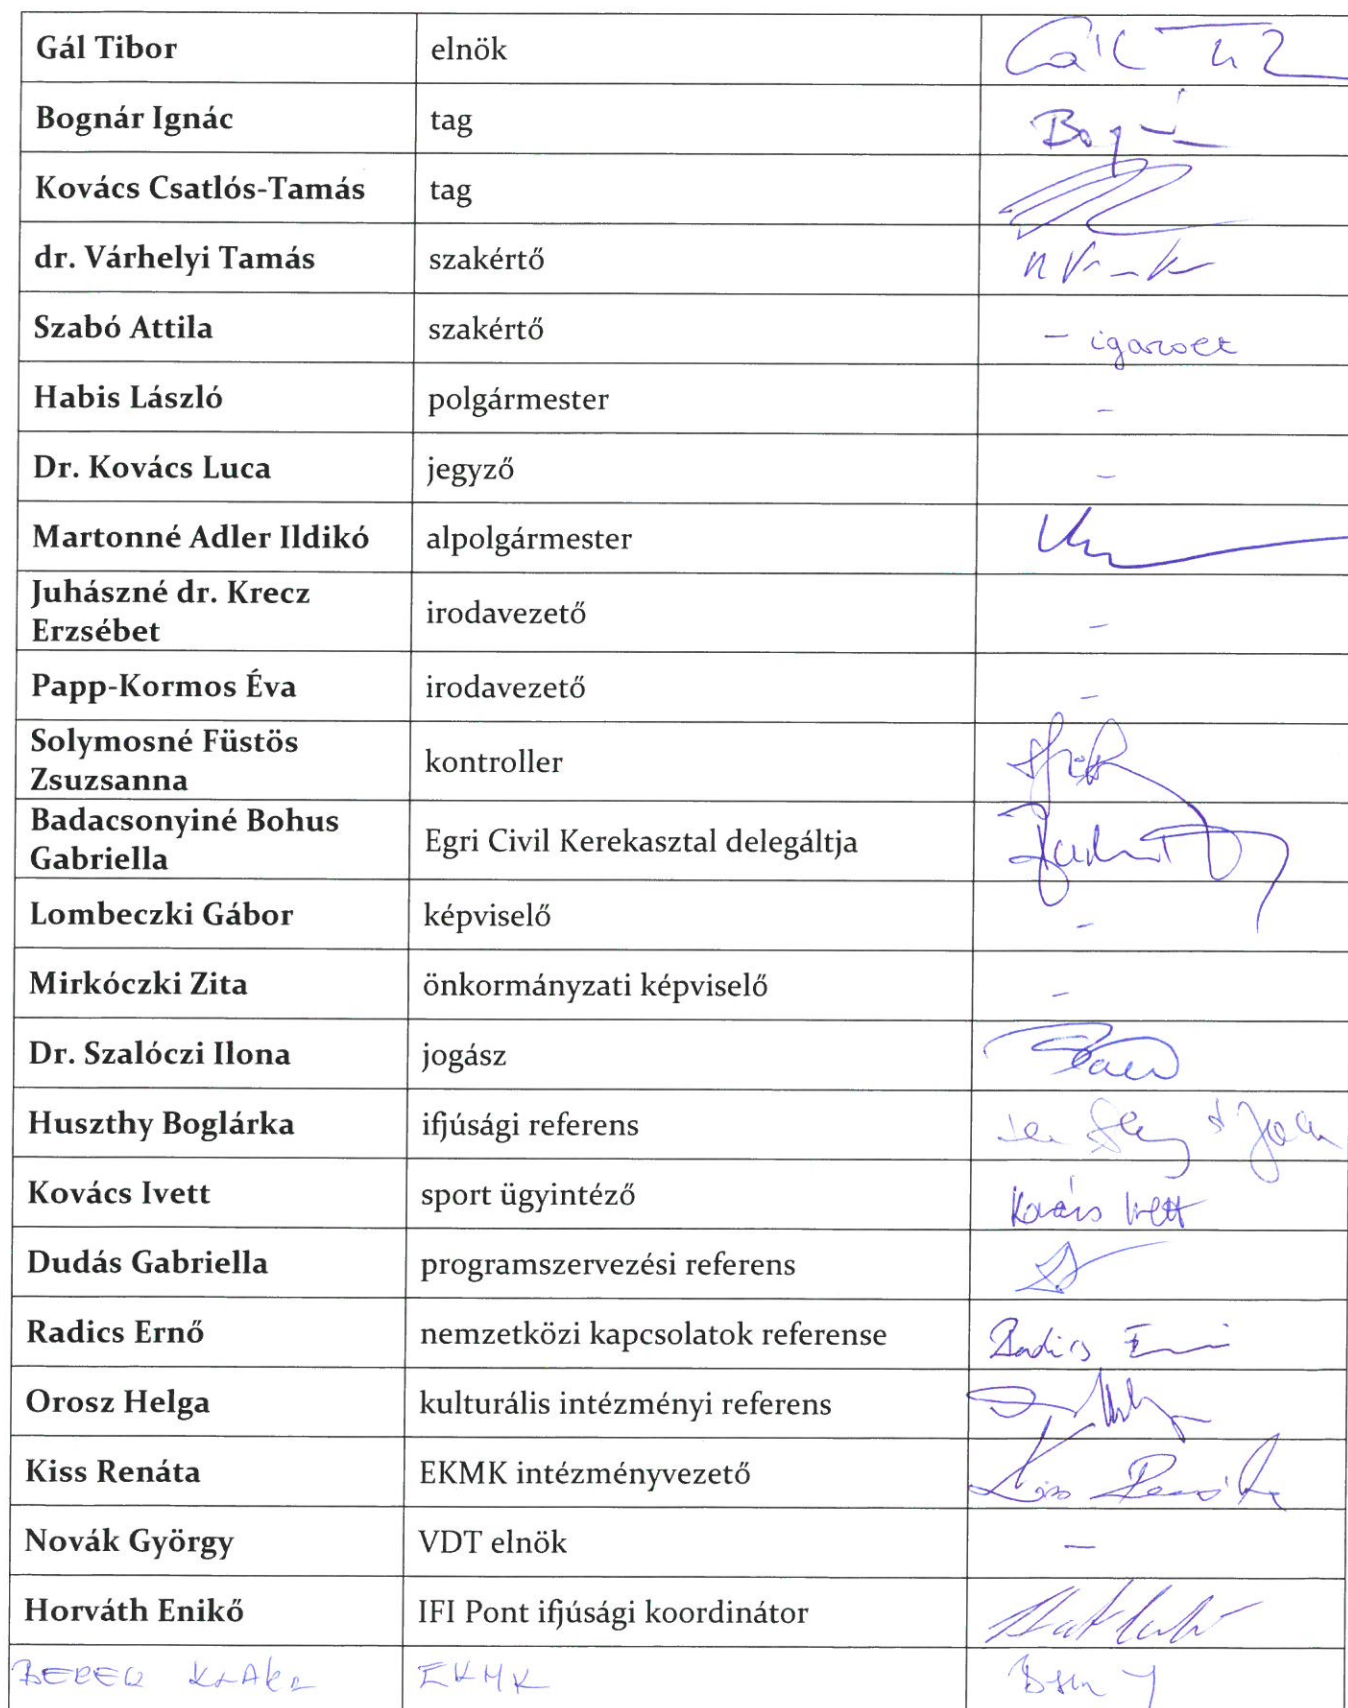 Gál Tibor elnök Gál Ti
Bognár Ignác tag Bogn
Kovács Csatlós-Tamás tag
dr. Várhelyi Tamás szakértő
Szabó Attila szakértő – igazolt
Habis László polgármester –
Dr. Kovács Luca jegyző –
Martonné Adler Ildikó alpolgármester
Juhászné dr. Krecz
Erzsébet irodavezető –
Papp-Kormos Éva irodavezető –
Solymosné Füstös
Zsuzsanna kontroller
Badacsonyiné Bohus
Gabriella Egri Civil Kerekasztal delegáltja
Lombeczki Gábor képviselő –
Mirkóczki Zita önkormányzati képviselő –
Dr. Szalóczi Ilona jogász
Huszthy Boglárka ifjúsági referens
Kovács Ivett sport ügyintéző Kovács Ivett
Dudás Gabriella programszervezési referens
Radics Ernő nemzetközi kapcsolatok referense Radics Ernő
Orosz Helga kulturális intézményi referens
Kiss Renáta EKMK intézményvezető Kiss Renáta
Novák György VDT elnök –
Horváth Enikő IFI Pont ifjúsági koordinátor
EKMK